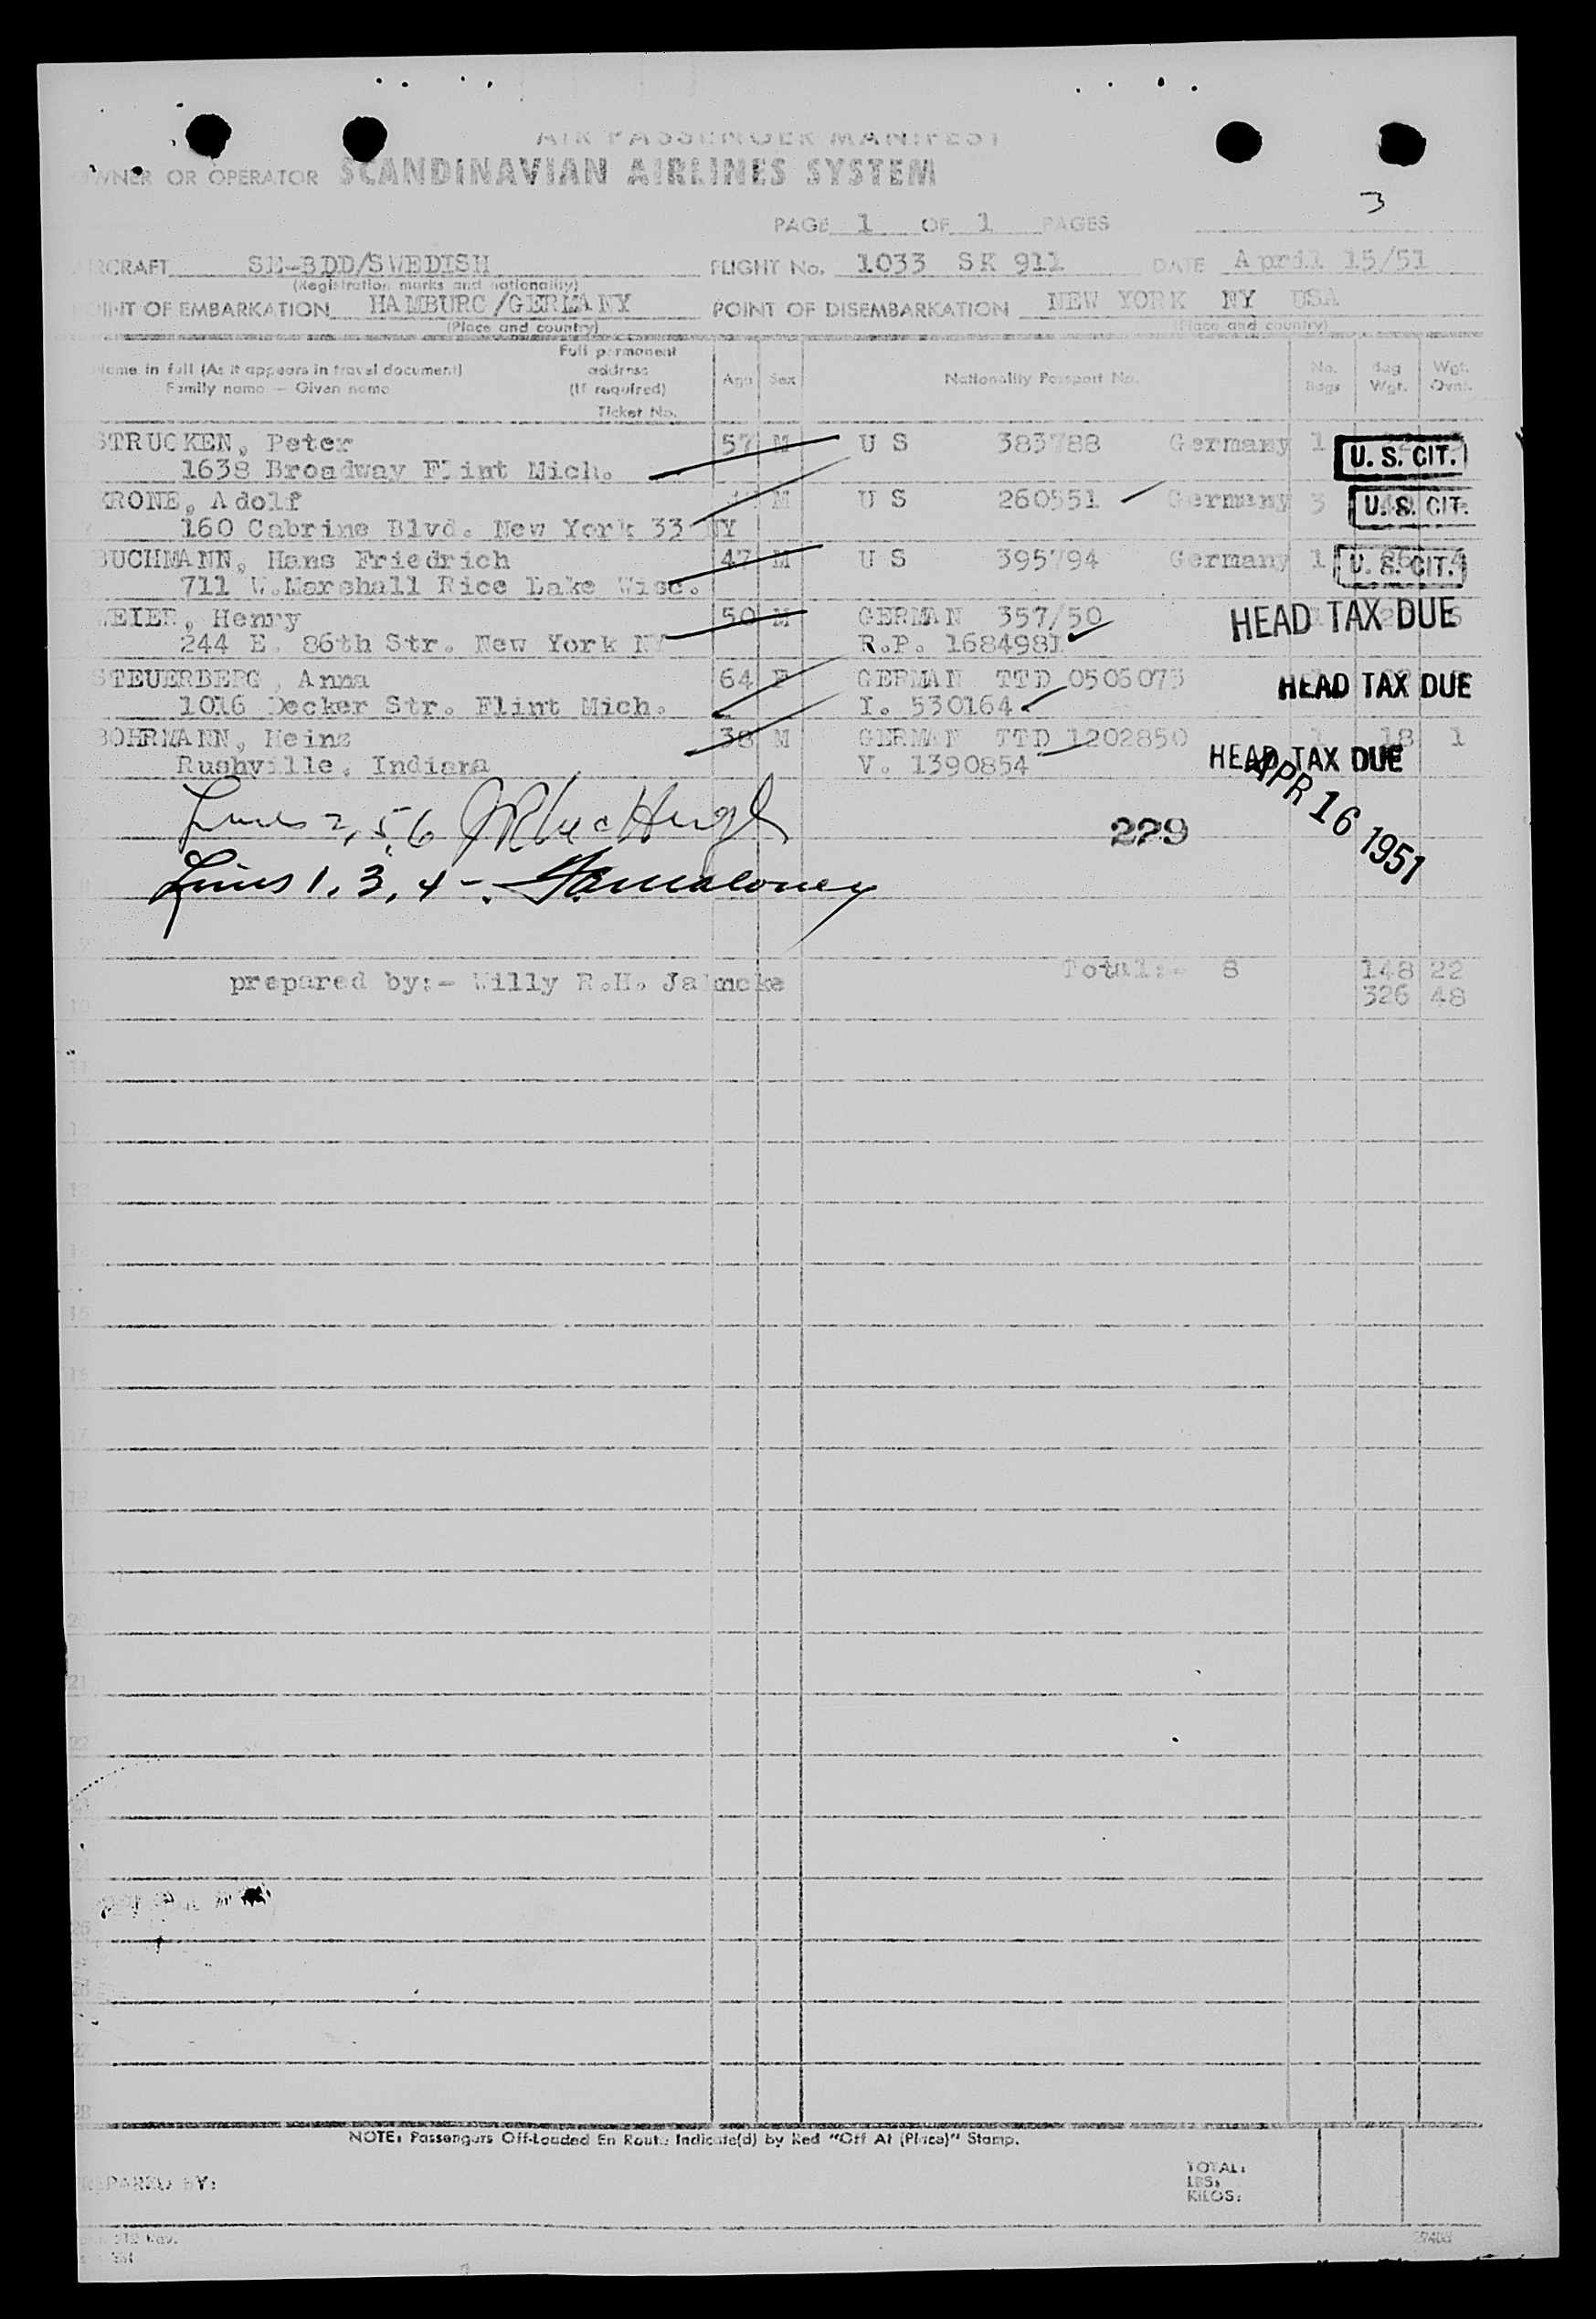 AIR PASSENGER MANIFEST
OWNER OR OPERATOR SCANDINAVIAN AIRLINES SYSTEM
3
PAGE 1 OF 1 PAGES
AIRCRAFT SE-BDD/SWEDISH FLIGHT No. 1033 SK 911 DATE April 15/51
(Registration marks and nationality)
POINT OF EMBARKATION HAMBURG/GERMANY POINT OF DISEMBARKATION NEW YORK NY USA
(Place and country) (Place and country)
Name in full (As it appears in travel document) Family name — Given name Full permanent address (If required) Ticket No. Age Sex Nationality Passport No. No. Bags Bag Wgt. Wgt. Ovnt.
STRUCKEN, Peter 57 M U S 383788 Germany 1 U. S. CIT.
1638 Broadway Flint Mich.
KRONE, Adolf M U S 260551 Germany 3 U. S. CIT.
160 Cabrine Blvd. New York 33 NY
BUCHMANN, Hans Friedrich 47 M U S 395794 Germany 1 26 4 U. S. CIT.
711 W.Marshall Rice Lake Wisc.
MEIER, Henry 50 M GERMAN 357/50 1 HEAD TAX DUE
244 E. 86th Str. New York NY R.P. 168498I
STEUERBERG, Anna 64 F GERMAN TTD 0506073 HEAD TAX DUE
1016 Decker Str. Flint Mich. I. 530164
BOHRMANN, Heinz 38 M GERMAN TTD 1202850 1 18 1
Rushville, Indiana V. 1390854 HEAD TAX DUE
APR 16 1951
Lines 2, 5, 6 JR MacHugh 229
Lines 1, 3, 4 -. Maloney
prepared by:- Willy R.H. Jahncke Total:- 8 148 22
326 48
NOTE: Passengers Off-Loaded En Route Indicate(d) by Red "Off At (Place)" Stamp.
PREPARED BY:
TOTAL:
LBS:
KILOS: